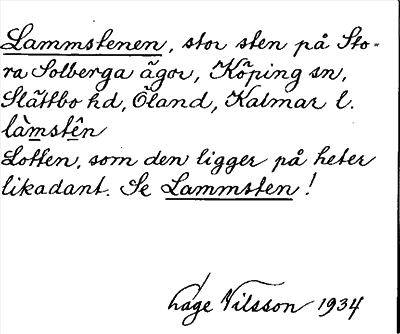 Lammstenen, stor sten på Sto-
ra Solberga ägor, Köping sn,
Slättbo hd, Öland, Kalmar l.
làmstên
Lotten, som den ligger på heter
likadant. Se Lammsten!
Låge Nilsson 1934